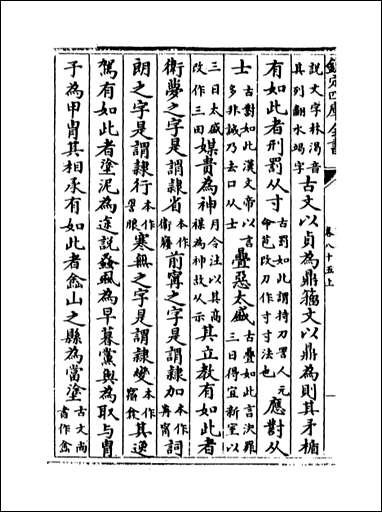 欽定四庫全書
卷八十五上
說文字林渴音
其列翻水竭字
古文以貞為鼎籀文以鼎為則其矛楯
有如此者刑罰从寸
古罰如此謂持刀詈人元
命苞改刀作寸寸法也
應對从
士
古對如此漢文帝以言
多非誠乃去口从士
疊惡太盛
古疊如此言決罪
三日得宜新室以
三日太盛
改作三田
媒貴為神
月令注以其高
禖為神故从示
其立教有如此者
衛夢之字是謂隸省
本作
前寧之字是謂隸加
本作
歬寍
詞
朗之字是謂隸行
本作
朖
寒無之字是謂隸變
本作
其逸
駕有如此者塗泥為途說為早暮黨與為取與胄
子為甲胄其相承有如此者嵞山之縣為當塗
古文尚
書作嵞